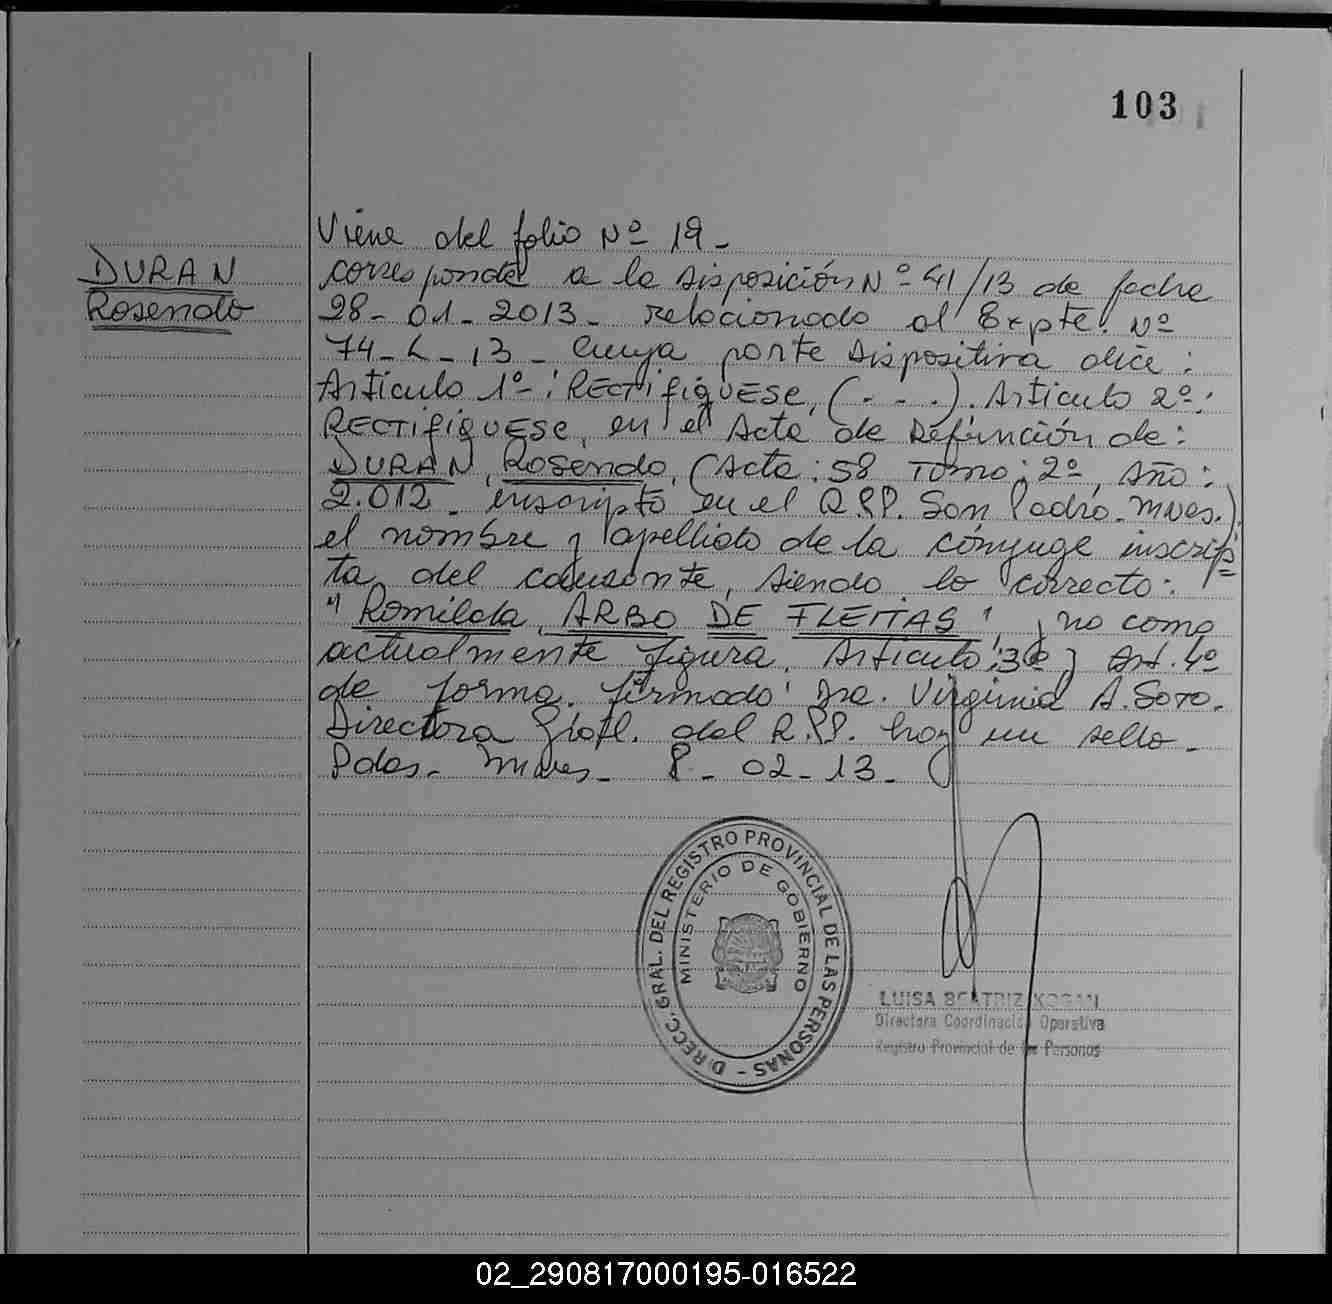 103
Viene del folio Nº 19-
DURAN
Rosendo
corresponde a la Disposición Nº 41/13 de fecha
28-01-2013- relacionado al Expte. Nº
74-L-13- Cuya parte Dispositiva dice:
Artículo 1º: RECTIFIQUESE, (...). Artículo 2º:
RECTIFIQUESE, en el Acta de Defunción de:
DURAN, Rosendo, (Acta: 58 Tomo: 2º, Año:
2.012- inscripto en el R.P.P. San Pedro-Mnes.)
el nombre y apellido de la cónyuge inscrip=
ta del causante, siendo lo correcto:
"Romilda, ARBO DE FLEITAS", y no como
actualmente figura. Artículo: 3º y Art. 4º
de forma. firmado: Dra. Virginia A. Soto.
Directora Gral. del R.P.P. hay un sello-
Pdas- Mnes- 8-02-13-
DIRECC. GRAL. DEL REGISTRO PROVINCIAL DE LAS PERSONAS -
MINISTERIO DE GOBIERNO
LUISA BEATRIZ KOGAN
Directora Coordinación Operativa
Registro Provincial de las Personas
02_290817000195-016522